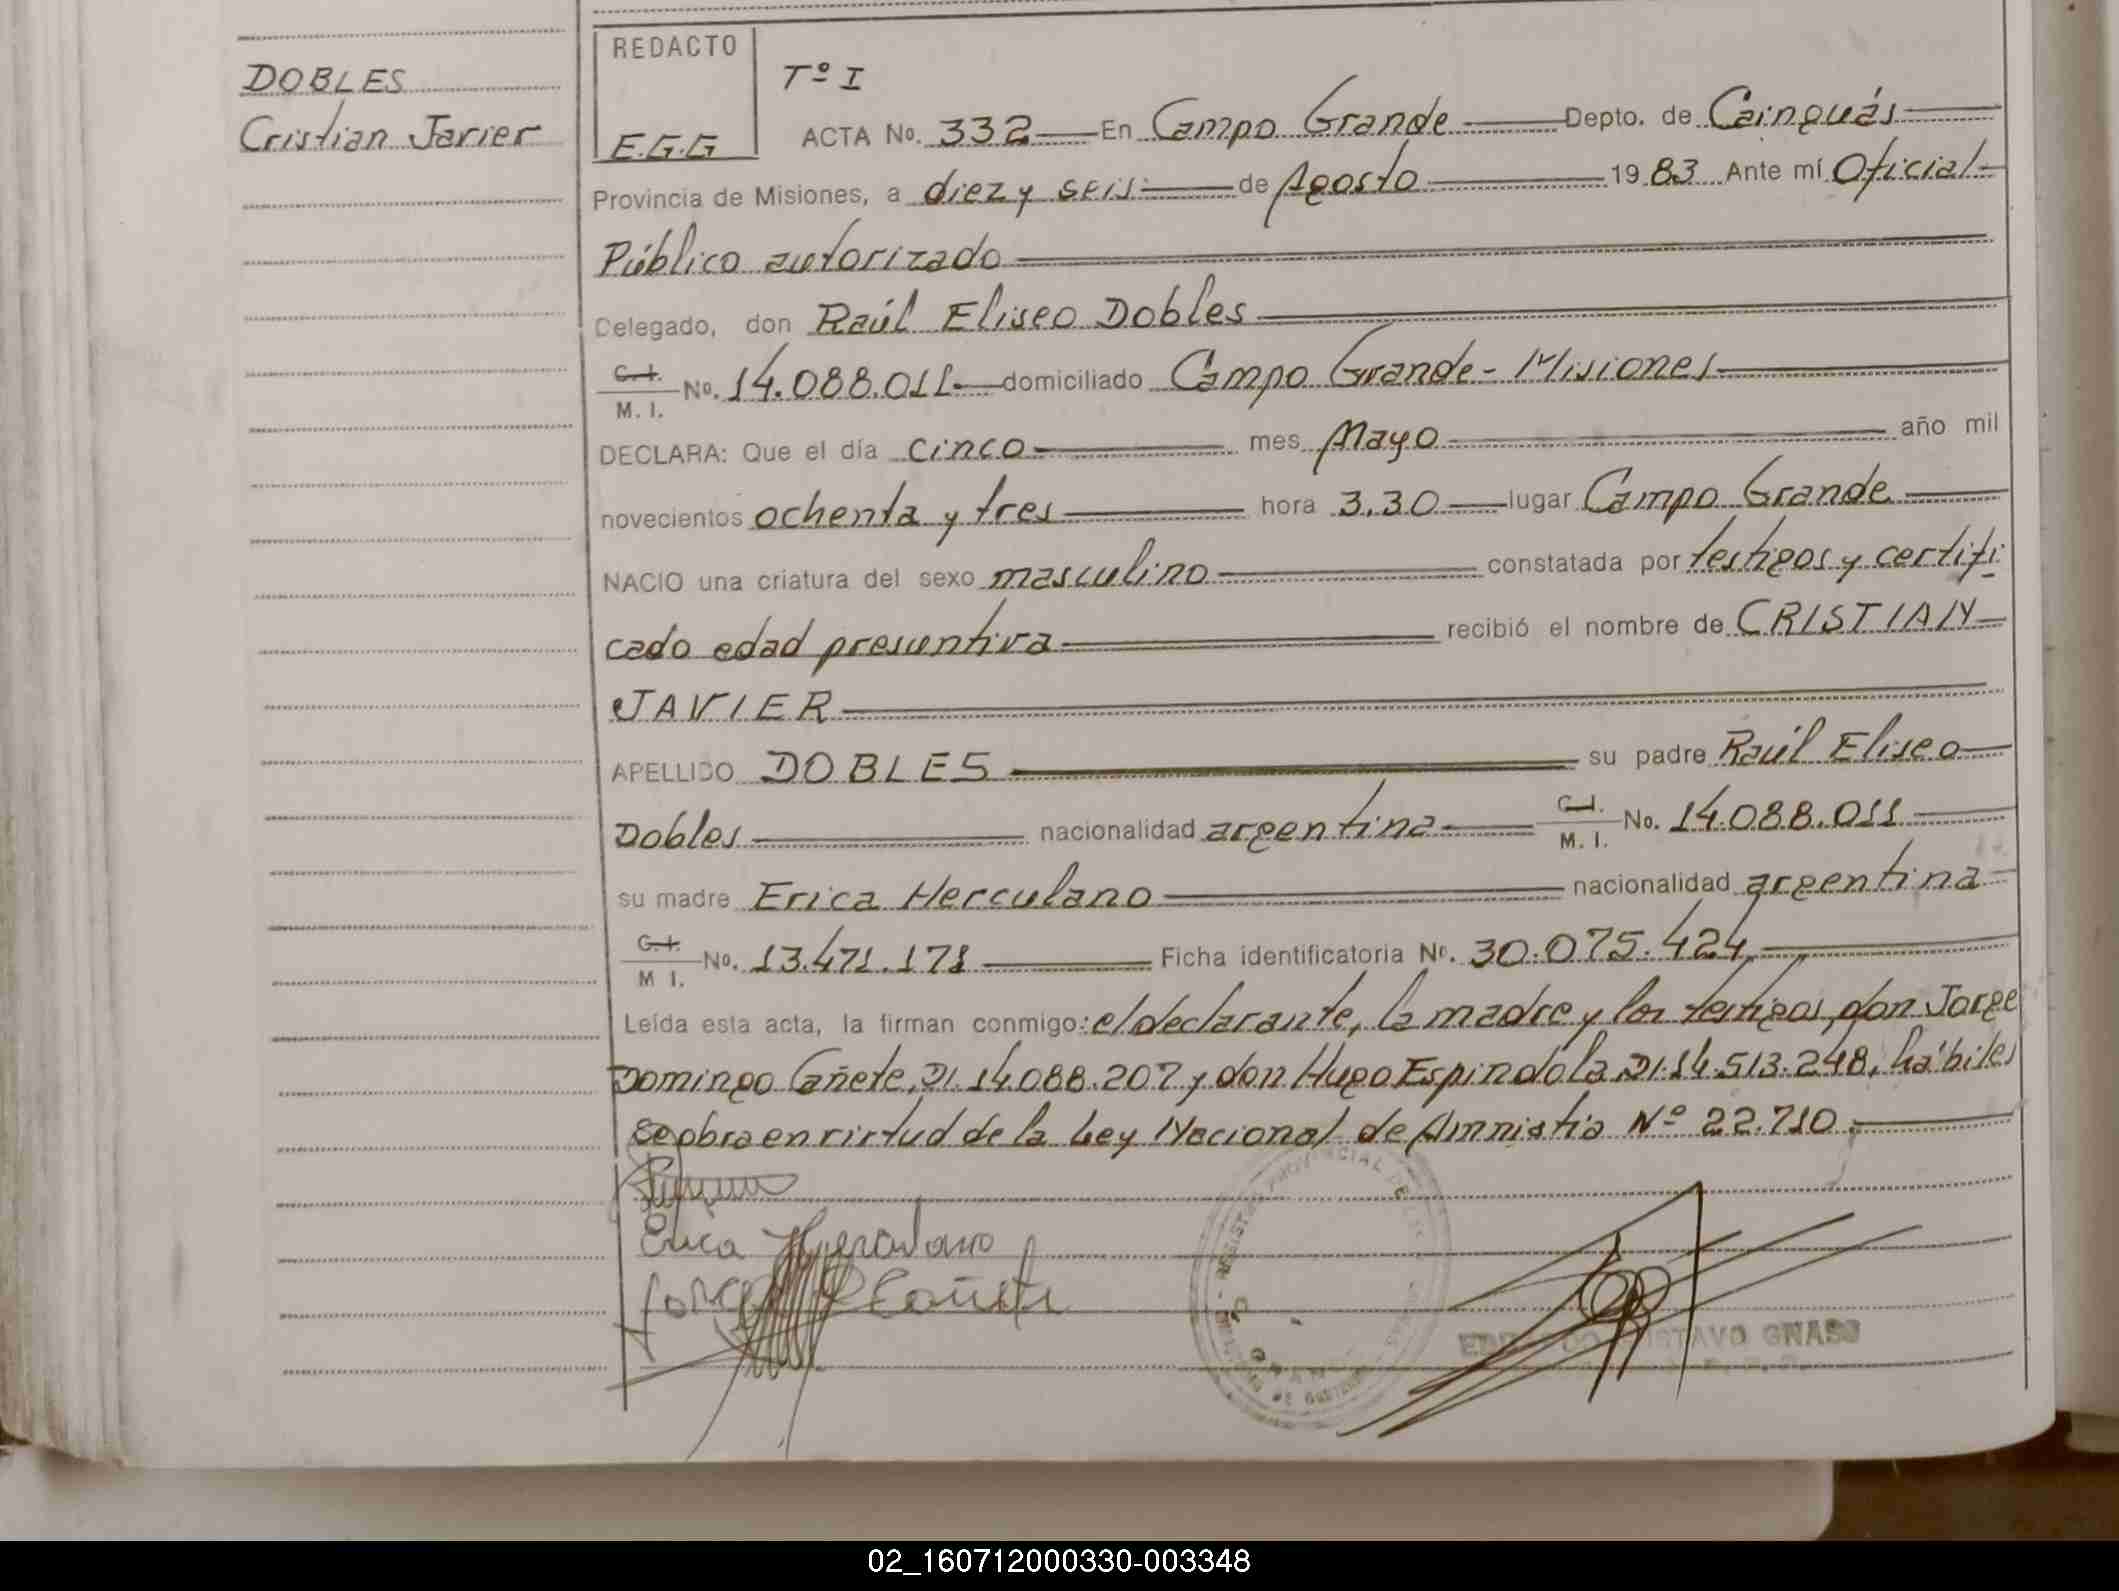 DOBLES
Cristian Javier
REDACTO
E.G.G
Tº I
ACTA No. 332 En Campo Grande Depto. de Cainguás
Provincia de Misiones, a diez y seis de Agosto 1983 Ante mí Oficial
Público autorizado
Delegado, don Raúl Eliseo Dobles
C.I. M.I. No. 14.088.011 domiciliado Campo Grande - Misiones
DECLARA: Que el día cinco mes Mayo año mil
novecientos ochenta y tres hora 3.30 lugar Campo Grande
NACIO una criatura del sexo masculino constatada por testigos y certifi
cado edad presuntiva recibió el nombre de CRISTIAN
JAVIER
APELLIDO DOBLES su padre Raúl Eliseo
Dobles nacionalidad argentina C.I. M.I. No. 14.088.011
su madre Erica Herculano nacionalidad argentina
C.I. M I. No. 13.471.171 Ficha identificatoria No. 30.075.424
Leída esta acta, la firman conmigo: el declarante, la madre y los testigos, don Jorge
Domingo Cañete, DI. 14.088.207 y don Hugo Espindola DI. 14.513.248, hábiles
Se obra en virtud de la Ley Nacional de Amnistia Nº 22.710.
Erica Herculano
Jorge Cañete
GUSTAVO GNASS
02_160712000330-003348